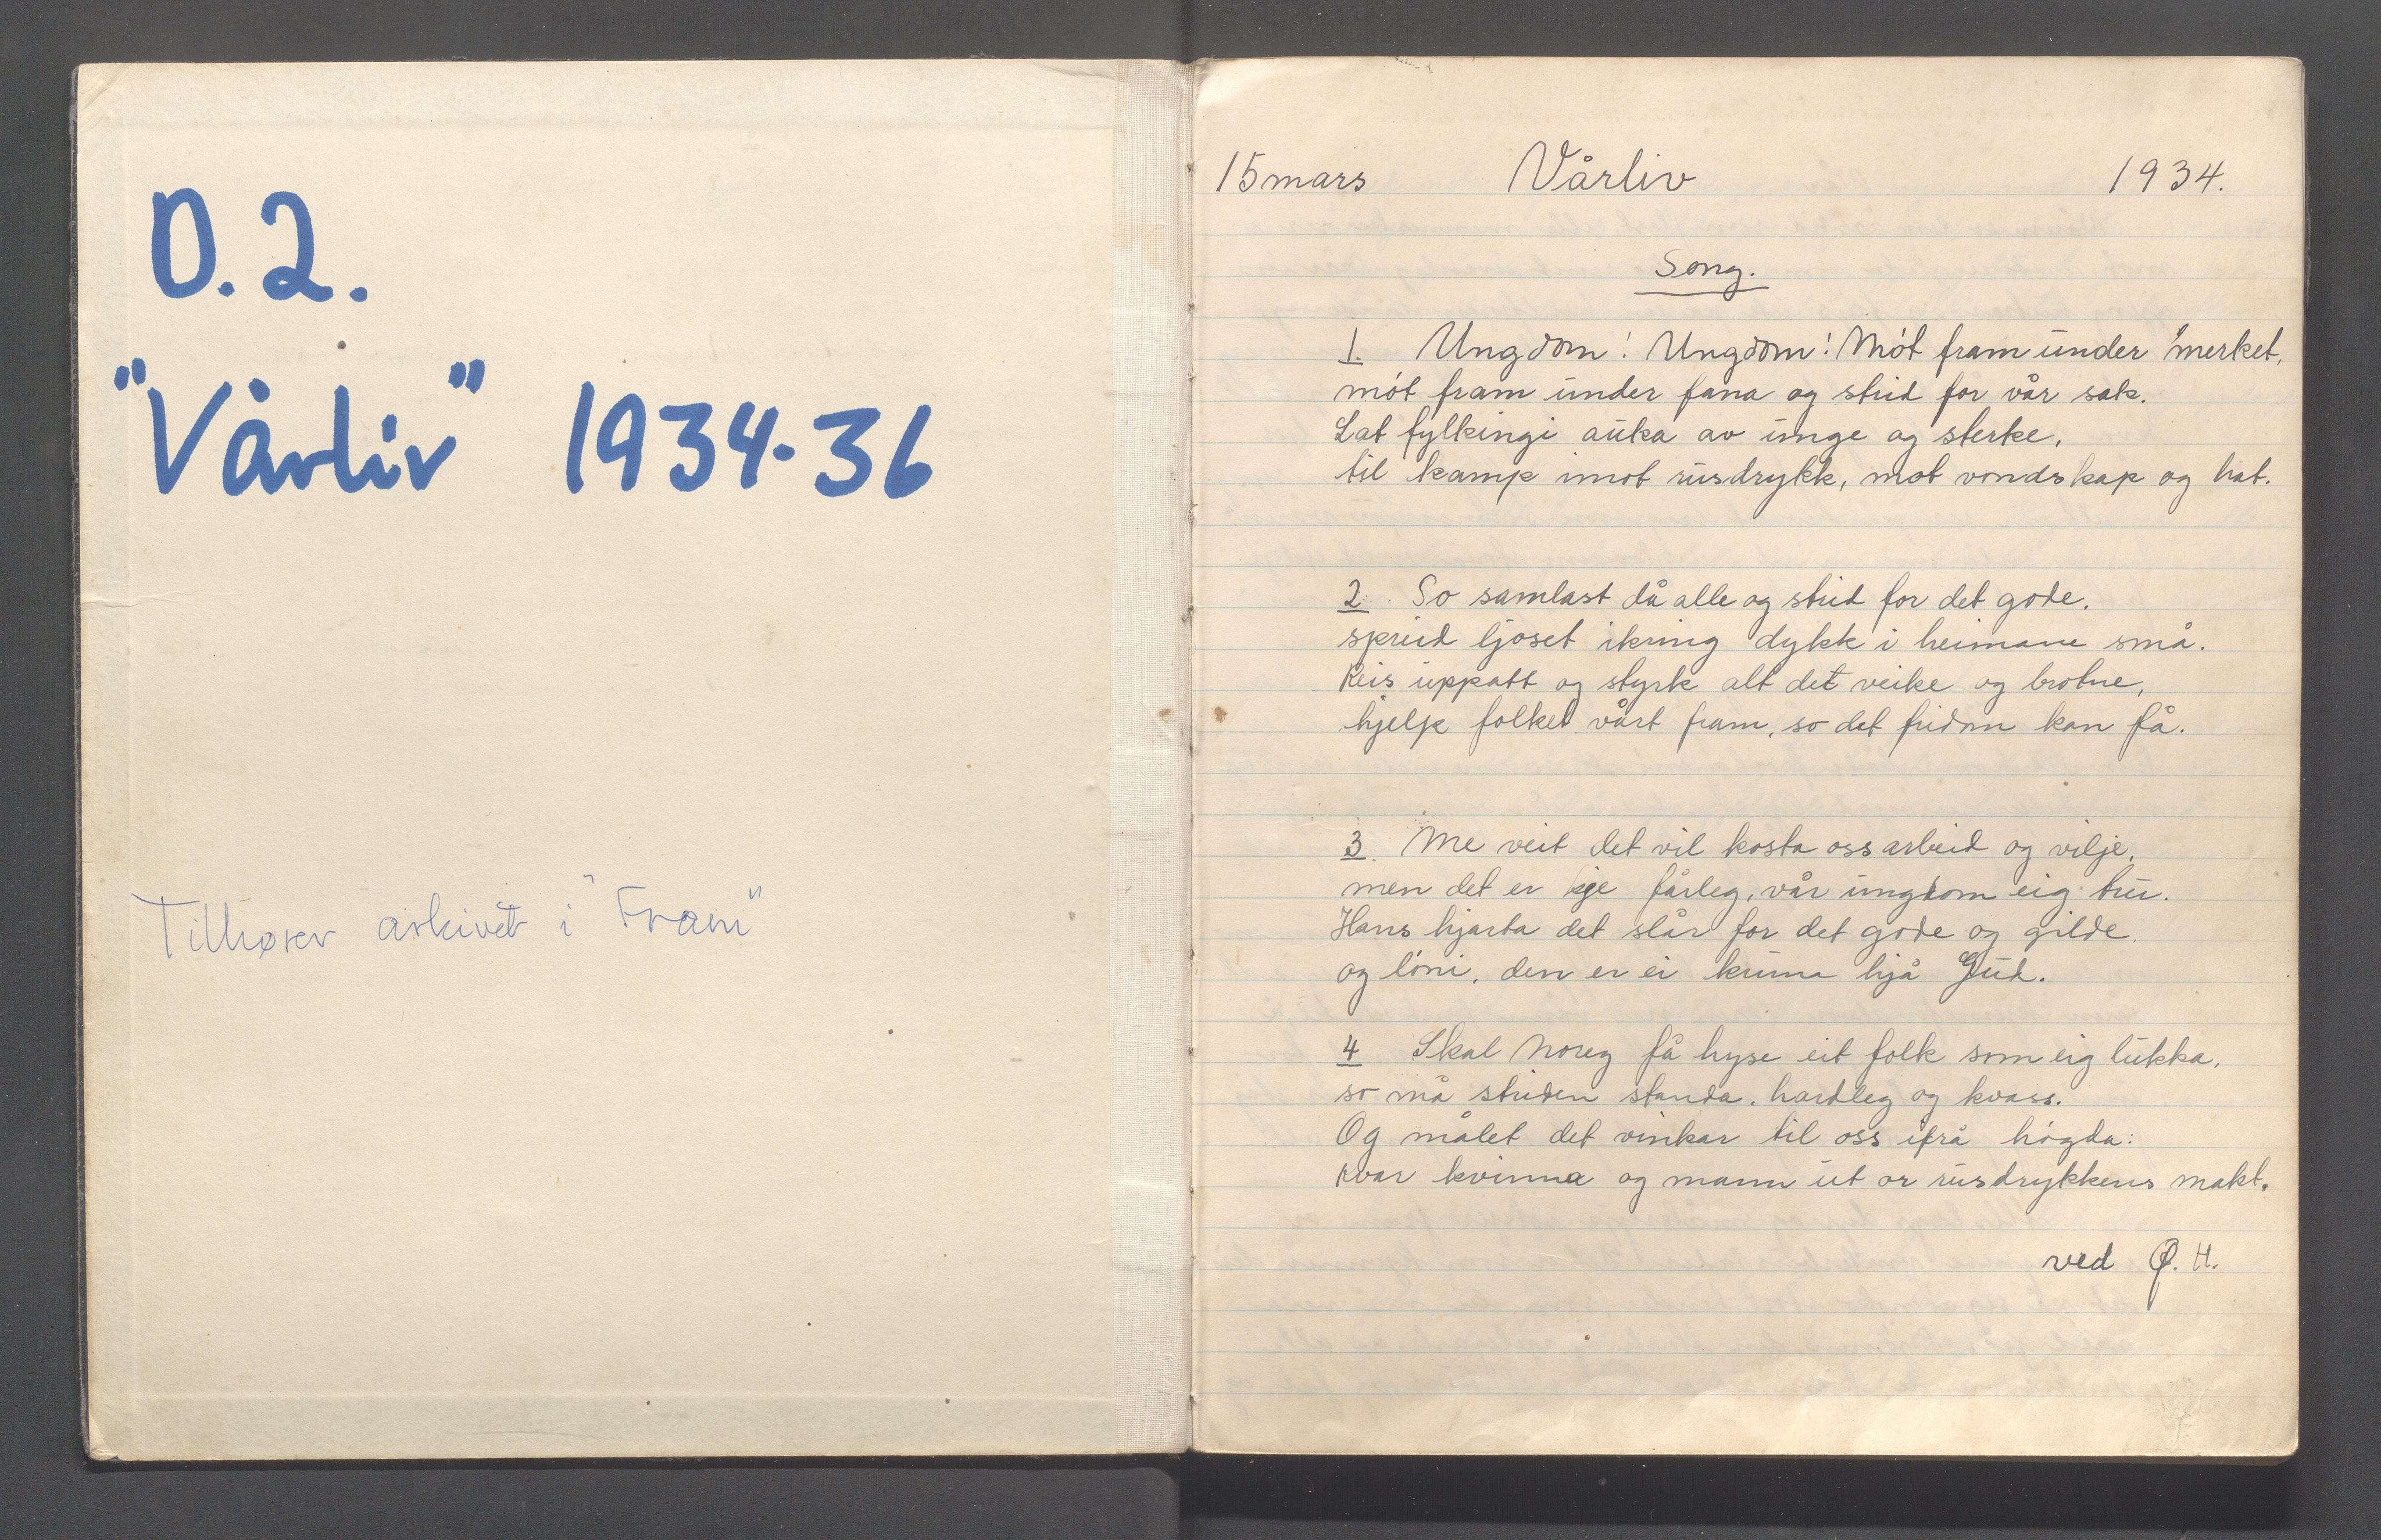 D. 2.
"Vårliv" 1934-36
Tilhører arkivet i "Fram"
15 mars Vårliv 1934.
Song.
1. Ungdom! Ungdom! Mót fram under merket,
mót fram under fana og strid for vår sak.
Lat fylkingi auka av unge og sterke,
til kamp imot rusdrykk, mot vondskap og hat.
2. So samlast då alle og strid for det gode,
spreid ljoset ikring dykk i heimane små.
Reis uppatt og styrk alt det veike og brotne,
hjelp folket vårt fram, so det fridom kan få.
3. Me veit det vil kosta oss arbeid og vilje,
men det er kje fårleg, vår ungdom eig tru.
Hans hjarta det slår for det gode og gilde,
og lóni, den er ei hjå Gud.
4 Skal Noreg få hyse eit folk som eig lukka,
so må striden standa, hardleg og kvass.
Og målet det vinkar til oss ifrå högda:
kvar kvinna og mann ut or rusdrykkens makt.
ved Ø. H.